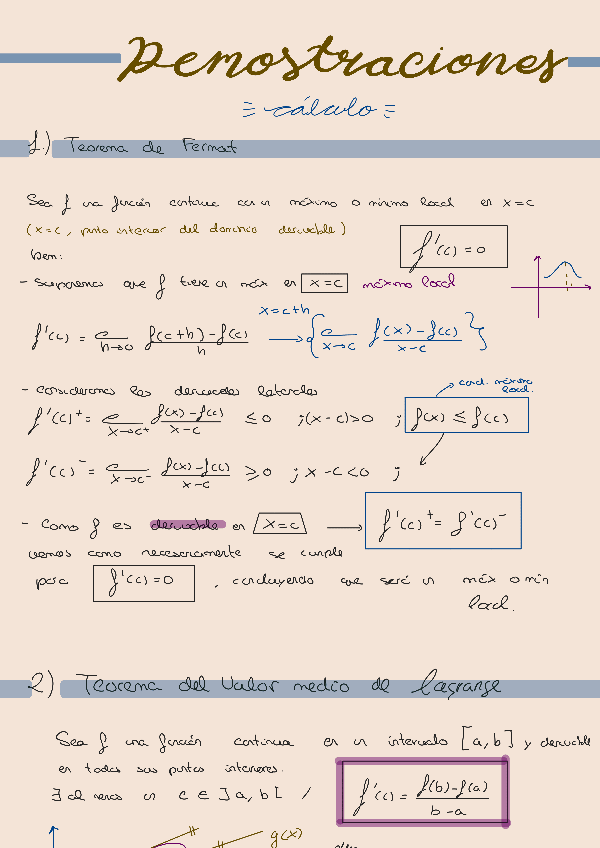 Demostraciones
= cálculo =
1.) Teorema de Fermat
Sea f una función continua con un máximo o mínimo local en x=c
(x=c, punto interior del dominio derivable)
Dem:
f'(c)=0
- Suponemos que f tiene un máx en x=c máximo local
x=c+h
f'(c) = h→0 f(c+h)-f(c) / h → { x→c f(x)-f(c) / x-c }
- Consideramos las derivadas laterales
cond. máximo local.
f'(c)⁺ = x→c⁺ f(x)-f(c) / x-c ≤ 0 ; (x-c)>0 ; f(x) ≤ f(c)
f'(c)⁻ = x→c⁻ f(x)-f(c) / x-c ≥ 0 ; x-c<0 ;
- Como f es derivable en x=c → f'(c)⁺ = f'(c)⁻
vemos como necesariamente se cumple
para f'(c)=0 , concluyendo que será un máx o mín
local.
2) Teorema del Valor medio de Lagrange
Sea f una función continua en un intervalo [a,b] y derivable
en todos sus puntos interiores.
∃ al menos un c ∈ ]a,b[ / f'(c) = f(b)-f(a) / b-a
g(x)